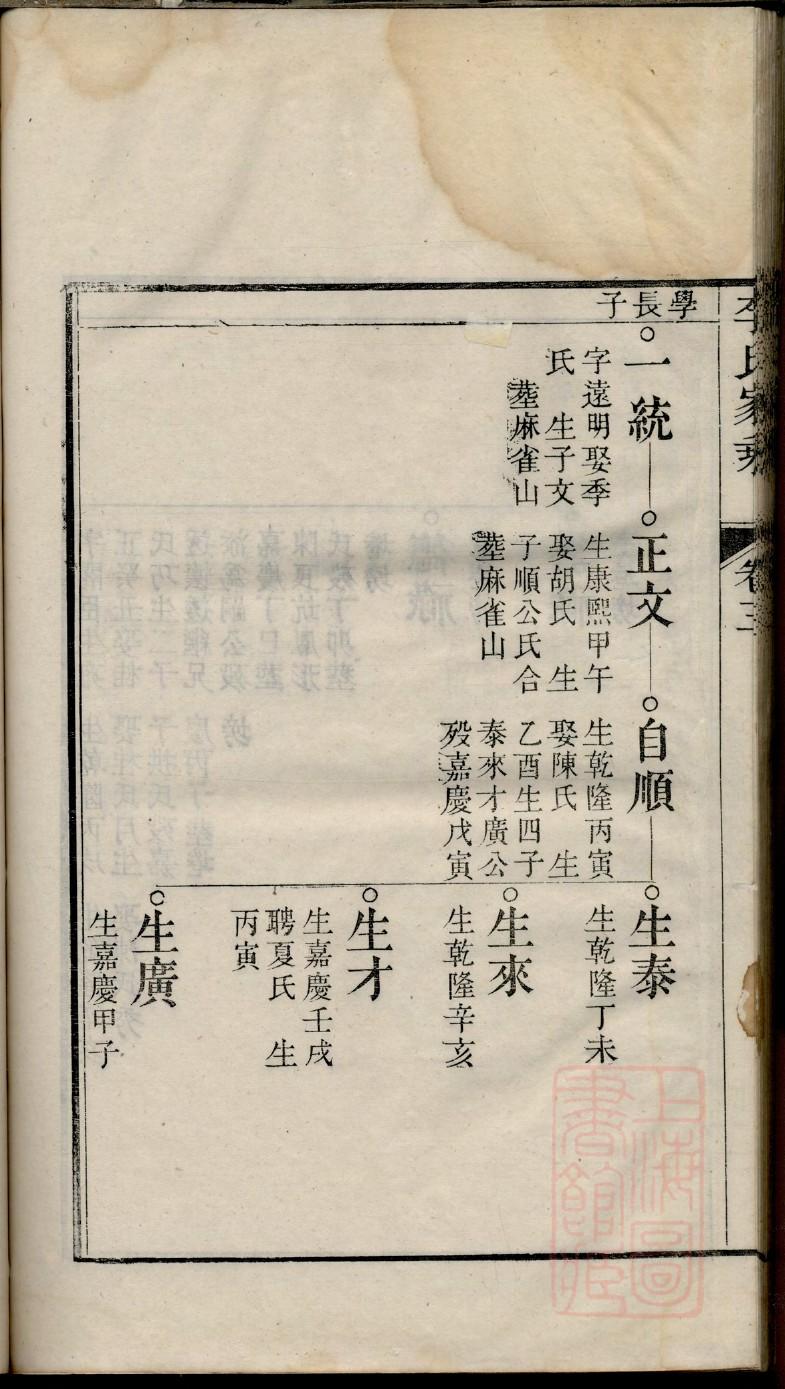 李氏家乘 卷三
學長子
一統
字遠明娶季
氏 生子文
塟麻雀山
正文
生康熙甲午
娶胡氏 生
子順公氏合
塟麻雀山
自順
生乾隆丙寅
娶陳氏 生
乙酉生四子
泰來才廣公
歿嘉慶戊寅
生泰
生乾隆丁未
生來
生乾隆辛亥
生才
生嘉慶壬戌
聘夏氏 生
丙寅
生廣
生嘉慶甲子
上海圖書館藏